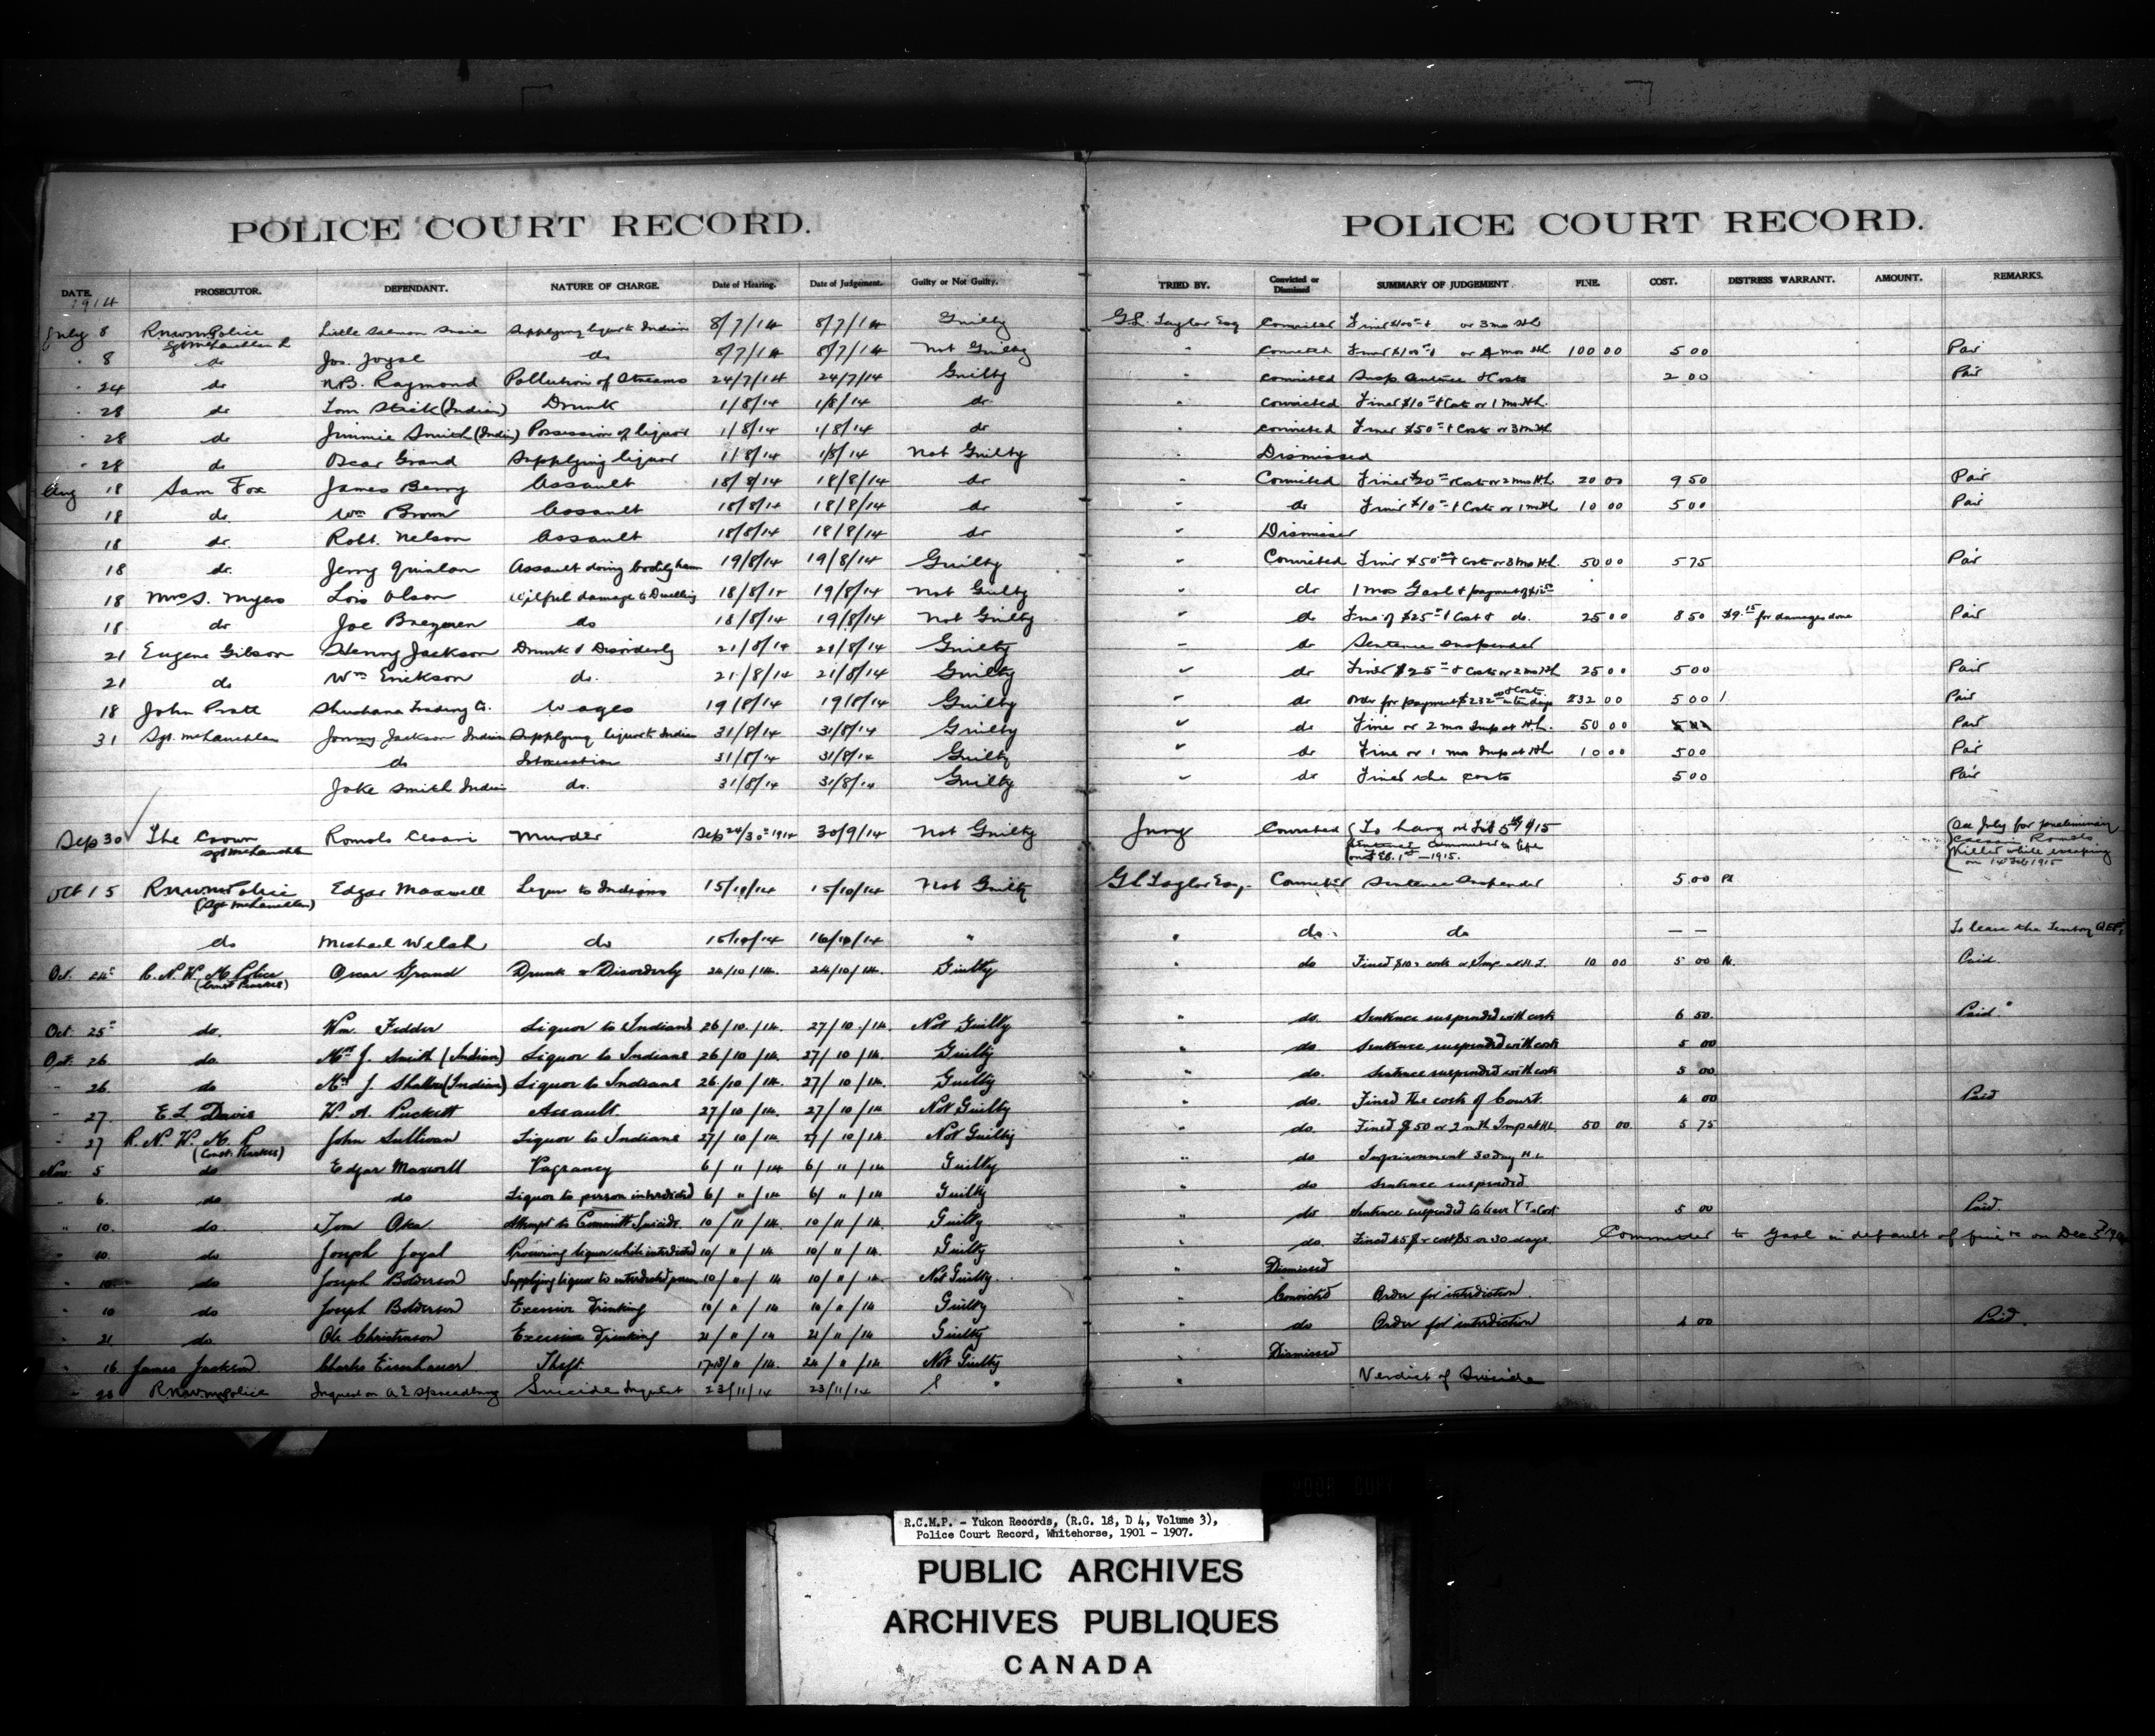 POLICE COURT RECORD.
DATE. PROSECUTOR. DEFENDANT. NATURE OF CHARGE. Date of Hearing. Date of Judgement. Guilty or Not Guilty.
1914
July 8 RNWMPolice Little Salmon Susie Supplying liquor to Indian 8/7/14 8/7/14 Guilty
Sgt McLauchlan
" 8 do Jos. Joyal do 8/7/14 8/7/14 Not Guilty
" 24 do N.B. Raymond Pollution of Streams 24/7/14 24/7/14 Guilty
" 28 do Tom Stick (Indian) Drunk 1/8/14 1/8/14 do
" 28 do Jimmie Smith (Indian) Possession of liquor 1/8/14 1/8/14 do
" 28 do Oscar Grand Supplying liquor 1/8/14 1/8/14 Not Guilty
Aug 18 Sam Fox James Berry Assault 18/8/14 18/8/14 do
18 do. Wm Brown Assault 18/8/14 18/8/14 do
18 do. Robt. Nelson Assault 18/8/14 18/8/14 do
18 do. Jerry Quinlan Assault doing bodily harm 19/8/14 19/8/14 Guilty
18 Mrs S. Myers Olson Wilful damage to Dwelling 18/8/14 19/8/14 Not Guilty
18 do Joe do 18/8/14 19/8/14 Not Guilty
21 Eugene Gibson Henry Jackson Drunk & Disorderly 21/8/14 21/8/14 Guilty
21 do Wm Erickson do. 21/8/14 21/8/14 Guilty
18 John Pratt Shushana Trading Co. Wages 19/8/14 19/8/14 Guilty
31 Sgt. McLauchlan Jonny Jackson Indian Supplying liquor to Indian 31/8/14 31/8/14 Guilty
do Intoxication 31/8/14 31/8/14 Guilty
Jake Smith Indian do. 31/8/14 31/8/14 Guilty
Sep 30 The Crown Romolo Cesari Murder Sep 24/30th 1914 30/9/14 Not Guilty
Sgt McLauchlan
Oct 15 RNWMPolice Edgar Maxwell Liquor to Indians 15/10/14 15/10/14 Not Guilty
(Sgt McLauchlan)
do Michael Welsh do 15/10/14 16/10/14 "
Oct. 24th R.N.W.M. Police Oscar Grand Drunk & Disorderly 24/10/14. 24/10/14. Guilty
Oct. 25th do. Wm. Fedder Liquor to Indians 26/10/14. 27/10/14. Not Guilty
Oct. 26 do. Mrs J. Smith (Indian) Liquor to Indians 26/10/14. 27/10/14. Guilty
" 26. do (Indian) Liquor to Indians 26/10/14. 27/10/14 Guilty
" 27. E L Davis W. A. Puckett Assault. 27/10/14. 27/10/14 Not Guilty
" 27 R. N. W. M. P. John Sullivan Liquor to Indians 27/10/14. 27/10/14 Not Guilty
Nov. 5 do Edgar Maxwell Vagrancy 6/11/14 6/"/14 Guilty
" 6. do do Liquor to person interdicted 6/"/14 6/"/14 Guilty
" 10. do. Tom Oka Attempt to Committ Suicide. 10/11/14. 10/11/14. Guilty
" 10. do Joseph Joyal Procuring liquor while interdicted 10/"/14 10/"/14. Guilty
" 10. do Joseph Bolderson Supplying liquor to interdicted person 10/"/14 10/"/14. Not Guilty.
" 10 do Joseph Bolderson Excessive Drinking 10/"/14 10/"/14 Guilty
" 21 do. Ole Christenson Excessive Drinking 21/"/14 21/"/14 Guilty
" 16. James Jackson Charles Eisenhauer Theft 17-18/"/14 24/"/14 Not Guilty
" 23 RNWMPolice Inquest on A.E Spreadbury Suicide Inquest 23/11/14 23/11/14
POLICE COURT RECORD.
TRIED BY. Convicted or Dismissed SUMMARY OF JUDGEMENT. FINE. COST. DISTRESS WARRANT. AMOUNT. REMARKS.
G.L. Taylor Esq Convicted Fined $100 & or 3 mo HL
" Convicted Fined $100 & or 4 mos HL 100 00 5 00 Paid
Convicted Susp Sentence & Costs 2 00 Paid
" Convicted Fined $10 & Costs or 1 mo HL.
" Convicted Fined $50 & Costs or 3 m HL
Dismissed
Convicted Fined $20 & Costs or 2 mos HL. 20 00 9 50 Paid
do Fined $10 & Costs or 1 m HL 10 00 5 00 Paid
Dismissed
Convicted Fined $50 & Cost or 3 mo HL. 50 00 5 75 Paid
do 1 mos Gaol & payment of
do Fine of $25 & Cost & do. 25 00 8 50 $9.15 for damages done Paid
do Sentence suspended
do Fined $25 & Costs or 2 mo HL 25 00 5 00 Paid
do Order for payment $232 & Costs 232 00 5 00 Paid
do Fine or 2 mo Imp at HL. 50 00 Paid
do Fine or 1 mo Imp at HL 10 00 5 00 Paid
do Fined the costs 5 00 Paid
Jury Convicted To hang on Feb 5th 1915
Sentence Commuted to life
on Feb. 1st — 1915.
See July for preliminary
Cesari Romolo
Killed while escaping
on 14 Feb 1915
G L Taylor Esq. Convicted Sentence Suspended 5 00 Pd
" do. do — — To leave the Territory
" do Fined $10 & costs or Imp at H.L. 10 00 5 00 Paid.
" do. Sentence suspended with costs 6 50. Paid
" do. Sentence suspended with costs 5 00
" do. Sentence suspended with costs 5 00
" do. Fined the costs of Court. 4 00 Paid
" do. Fined $50 or 2 mth Imp at HL 50 00. 5 75
" do Imprisonment 30 day H.L
" do Sentence suspended.
" do Sentence suspended to leave Y T & Cost 5 00 Paid.
" do. Fined 45$ & cost $5 or 30 days. Committed to Gaol in default of fine on Dec 3rd
" Dismissed
" Convicted Order for interdiction.
" do Order for interdiction 4 00 Paid.
" Dismissed
" Verdict of Suicide
R.C.M.P. - Yukon Records, (R.G. 18, D 4, Volume 3),
Police Court Record, Whitehorse, 1901 - 1907.
PUBLIC ARCHIVES
ARCHIVES PUBLIQUES
CANADA